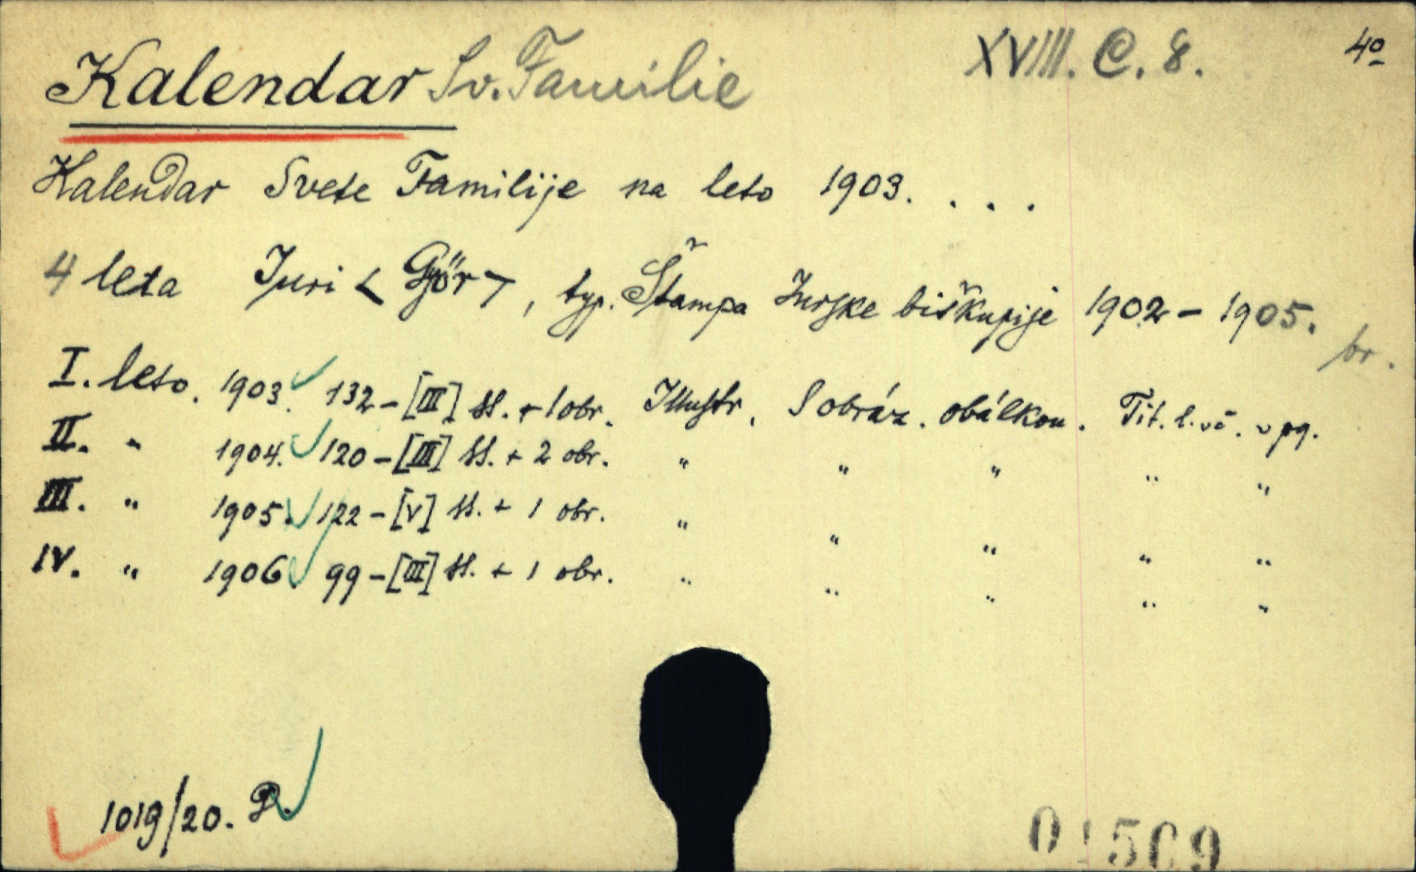 Kalendar Sv. Familie XVIII. C. 8. 4o
Kalendar Svete Familije na leto 1903. . . .
4 leta Juri < Győr >, typ. Štampa Jurske biškupije 1902 - 1905.
br.
I. leto. 1903. 132 - [III] ss. + 1 obr. Illustr. S obráz. obálkou. Tit. l. vč. v pg.
II. " 1904. 120 - [III] ss. + 2 obr. " " " " "
III. " 1905. 122 - [V] ss. + 1 obr. " " " " "
IV. " 1906 99 - [III] ss. + 1 obr. " " " " "
1019/20. P.